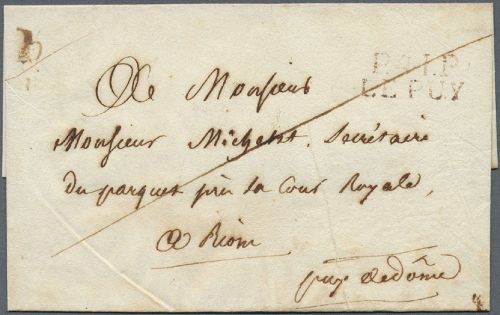 P.41.P.
LE PUY
A Monsieur
Monsieur Michelet, Secrétaire
du parquet près la Cour Royale,
a Riom
puy dedôme